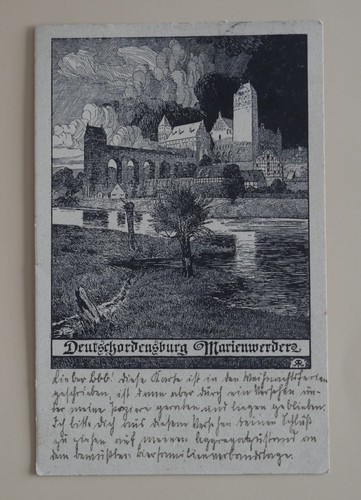 Deutschordensburg Marienwerder
Lieber Bbb. Diese Karte ist in den Weihnachtsferien
geschrieben, ist dann aber durch ein Versehen un-
ter meine Papiere geraten und liegen geblieben.
Ich bitte dich aus diesem Versehen keinen Schluß
zu ziehen auf meinen Aggregatzustand an
dem bewußten Bierfamilienverbandstage.